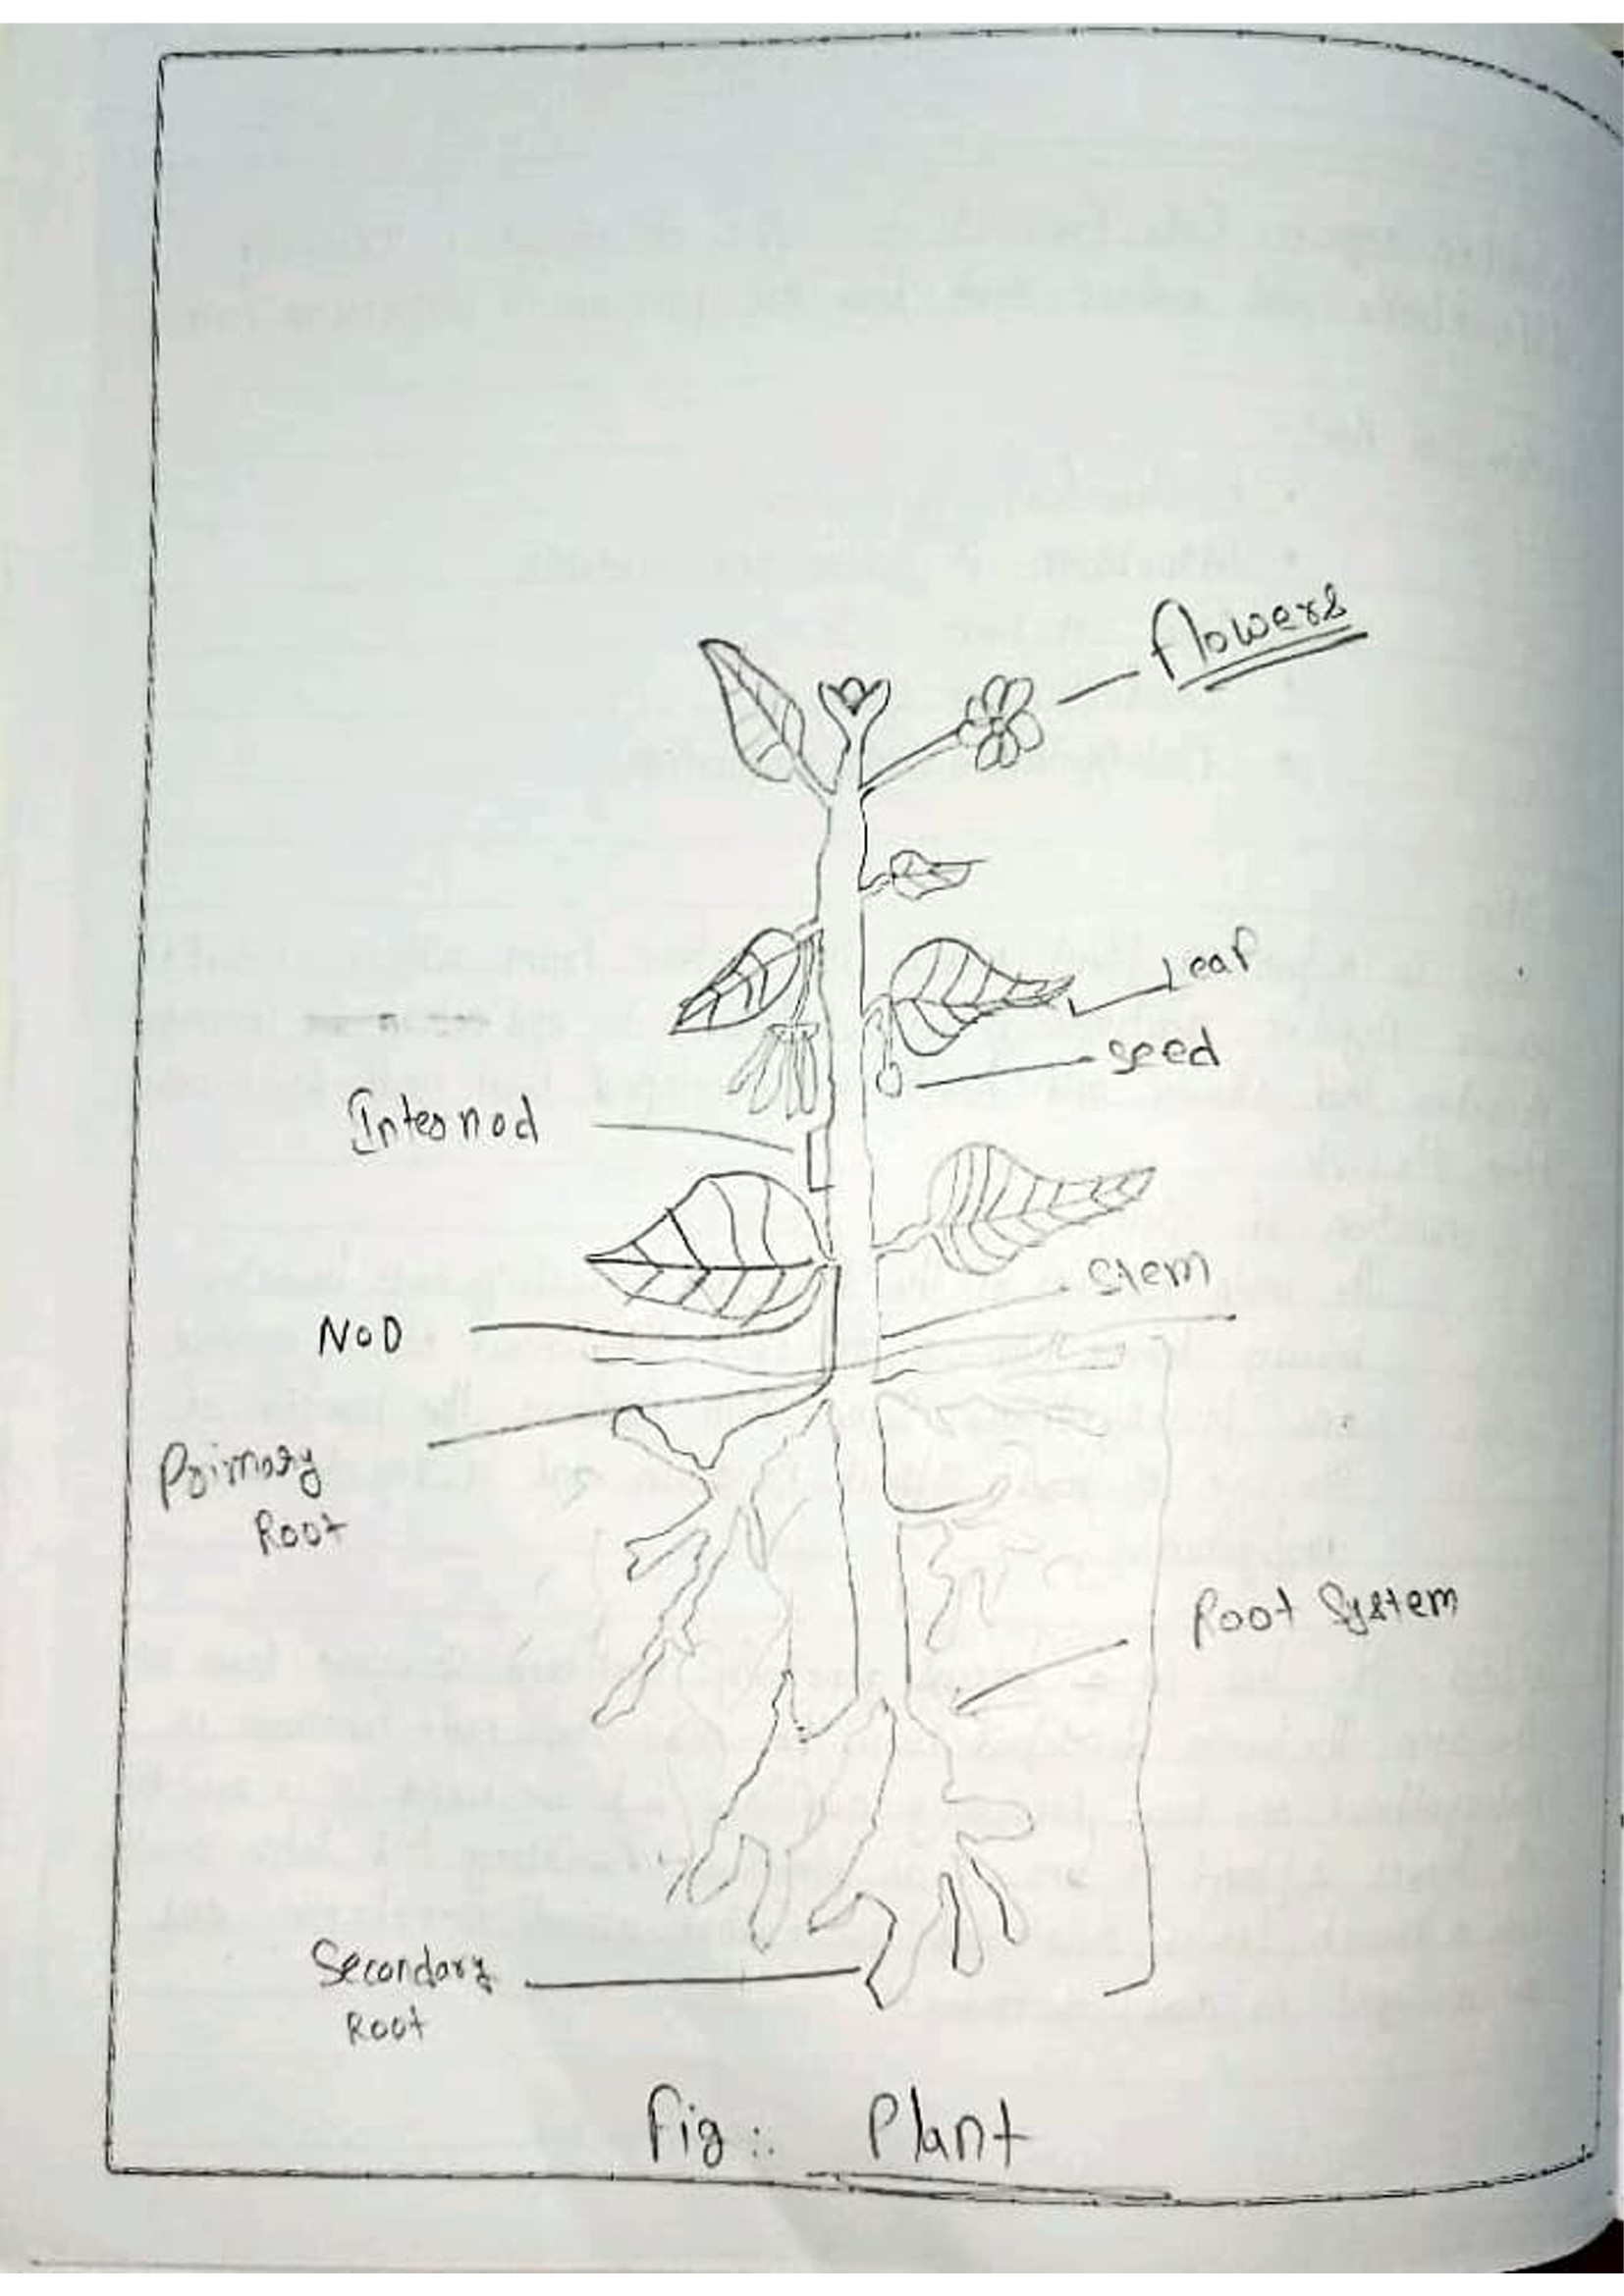 flowers
Leaf
seed
Internod
Stem
NOD
Primary
Root
Root System
Secondary
Root
Fig :. Plant